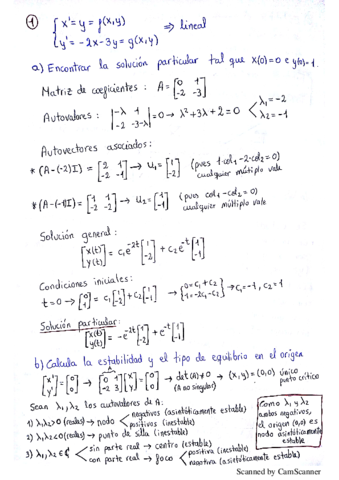 ① { x' = y = f(x,y)
y' = -2x-3y = g(x,y) ⇒ lineal
a) Encontrar la solución particular tal que x(0)=0 e y(0)=1.
Matriz de coeficientes: A = [0 1; -2 -3]
Autovalores: |-λ 1; -2 -3-λ| = 0 → λ²+3λ+2=0 < λ₁=-2 λ₂=-1
Autovectores asociados:
* (A-(-2)I) = [2 1; -2 -1] → u₁ = [1; -2] (pues 1·col₁-2·col₂=0) cualquier múltiplo vale
* (A-(-1)I) = [1 1; -2 -2] → u₂ = [1; -1] (pues col₁-col₂=0) cualquier múltiplo vale
Solución general:
[x(t); y(t)] = c₁e^-2t [1; -2] + c₂e^-t [1; -1]
Condiciones iniciales:
t=0 → [0; 1] = c₁[1; -2] + c₂[1; -1] → {0=c₁+c₂; 1=-2c₁-c₂} → c₁=-1, c₂=1
Solución particular:
[x(t); y(t)] = -e^-2t [1; -2] + e^-t [1; -1]
b) Calcula la estabilidad y el tipo de equilibrio en el origen
[x'; y'] = [0; 0] → [0 1; -2 3] [x; y] = [0; 0] → det(A)≠0 (A no singular) → (x,y)=(0,0) único punto crítico
Sean λ₁,λ₂ los autovalores de A:
1) λ₁λ₂>0 (reales) → nodo < negativos (asintóticamente estable) positivos (inestable)
2) λ₁λ₂<0 (reales) → punto de silla (inestable)
3) λ₁,λ₂ ∈ ℂ < sin parte real → centro (estable)
con parte real → foco < positiva (inestable) negativa (asintóticamente estable)
Como λ₁ y λ₂ ambos negativos, el origen (0,0) es nodo asintóticamente estable
Scanned by CamScanner